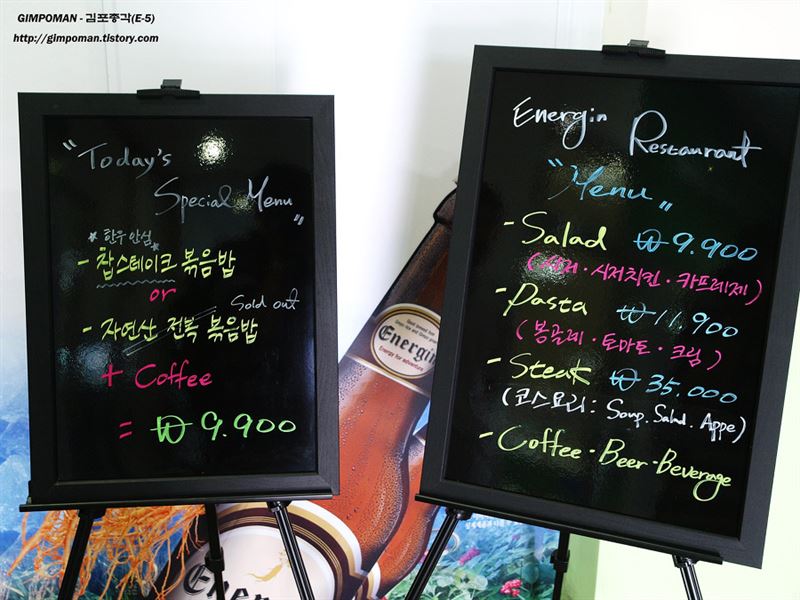 GIMPOMAN - 김포총각(E-5)
http://gimpoman.tistory.com
"Today's
Special Menu"
*한우 안심*
- 찹스테이크 볶음밥
or
Sold out
- 자연산 전복 볶음밥
+ Coffee
= ₩ 9.900
Energin Restaurant
"Menu"
- Salad ₩ 9.900
(시저 · 시저치킨 · 카프레제)
- Pasta ₩ 11,900
(봉골레 · 토마토 · 크림)
- Steak ₩ 35.000
(코스요리 : Soup. Salad. Appe)
- Coffee · Beer · Beverage
Energin
Energy for adventure
Energin